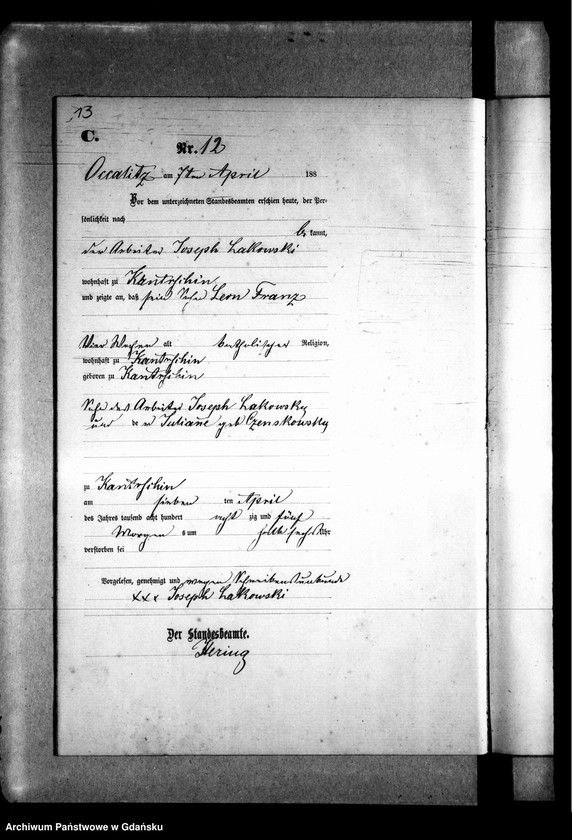 13
C.
Nr. 12
Occalitz am 7ten April 188
Vor dem unterzeichneten Standesbeamten erschien heute, der Per-
sönlichkeit nach
be kannt,
der Arbeiter Joseph Lakowski
wohnhaft zu Kantrschin
und zeigte an, daß sein Sohn Leon Franz
Vier Wochen alt katholischer Religion,
wohnhaft zu Kantrschin
geboren zu Kantrschin
Sohn des Arbeiter Joseph Lakowsky
und Juliane geb Czenskowsky
zu Kantrschin
am sieben ten April
des Jahres tausend acht hundert acht zig und fünf
Morgens um halb sechs Uhr
verstorben sei
Vorgelesen, genehmigt und wegen Schreibensunkunde
xxx Joseph Lakowski
Der Standesbeamte.
Hering
Archiwum Państwowe w Gdańsku